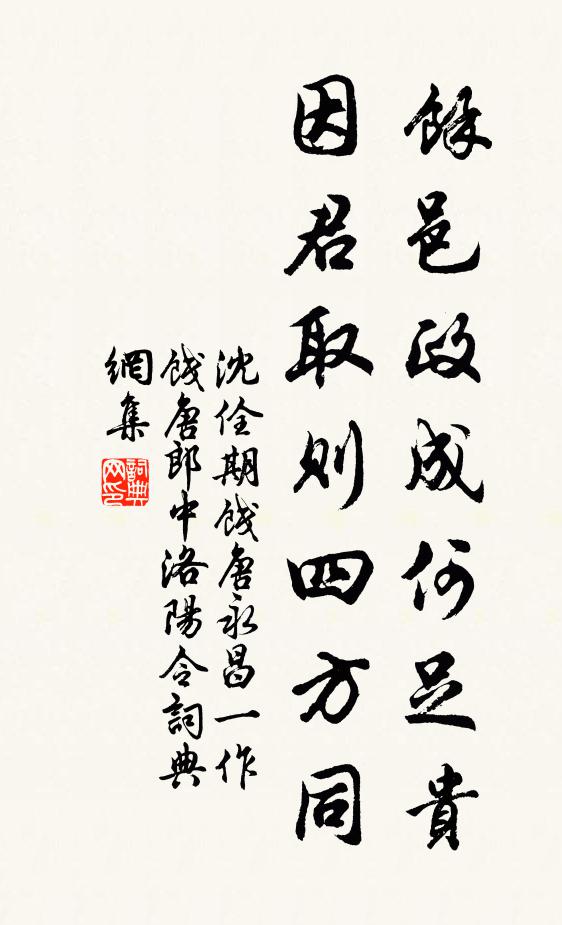 餘邑政成何足貴
因君取則四方同
沈佺期餞唐永昌一作
餞唐郎中洛陽令詞典
網集
詞典
网印